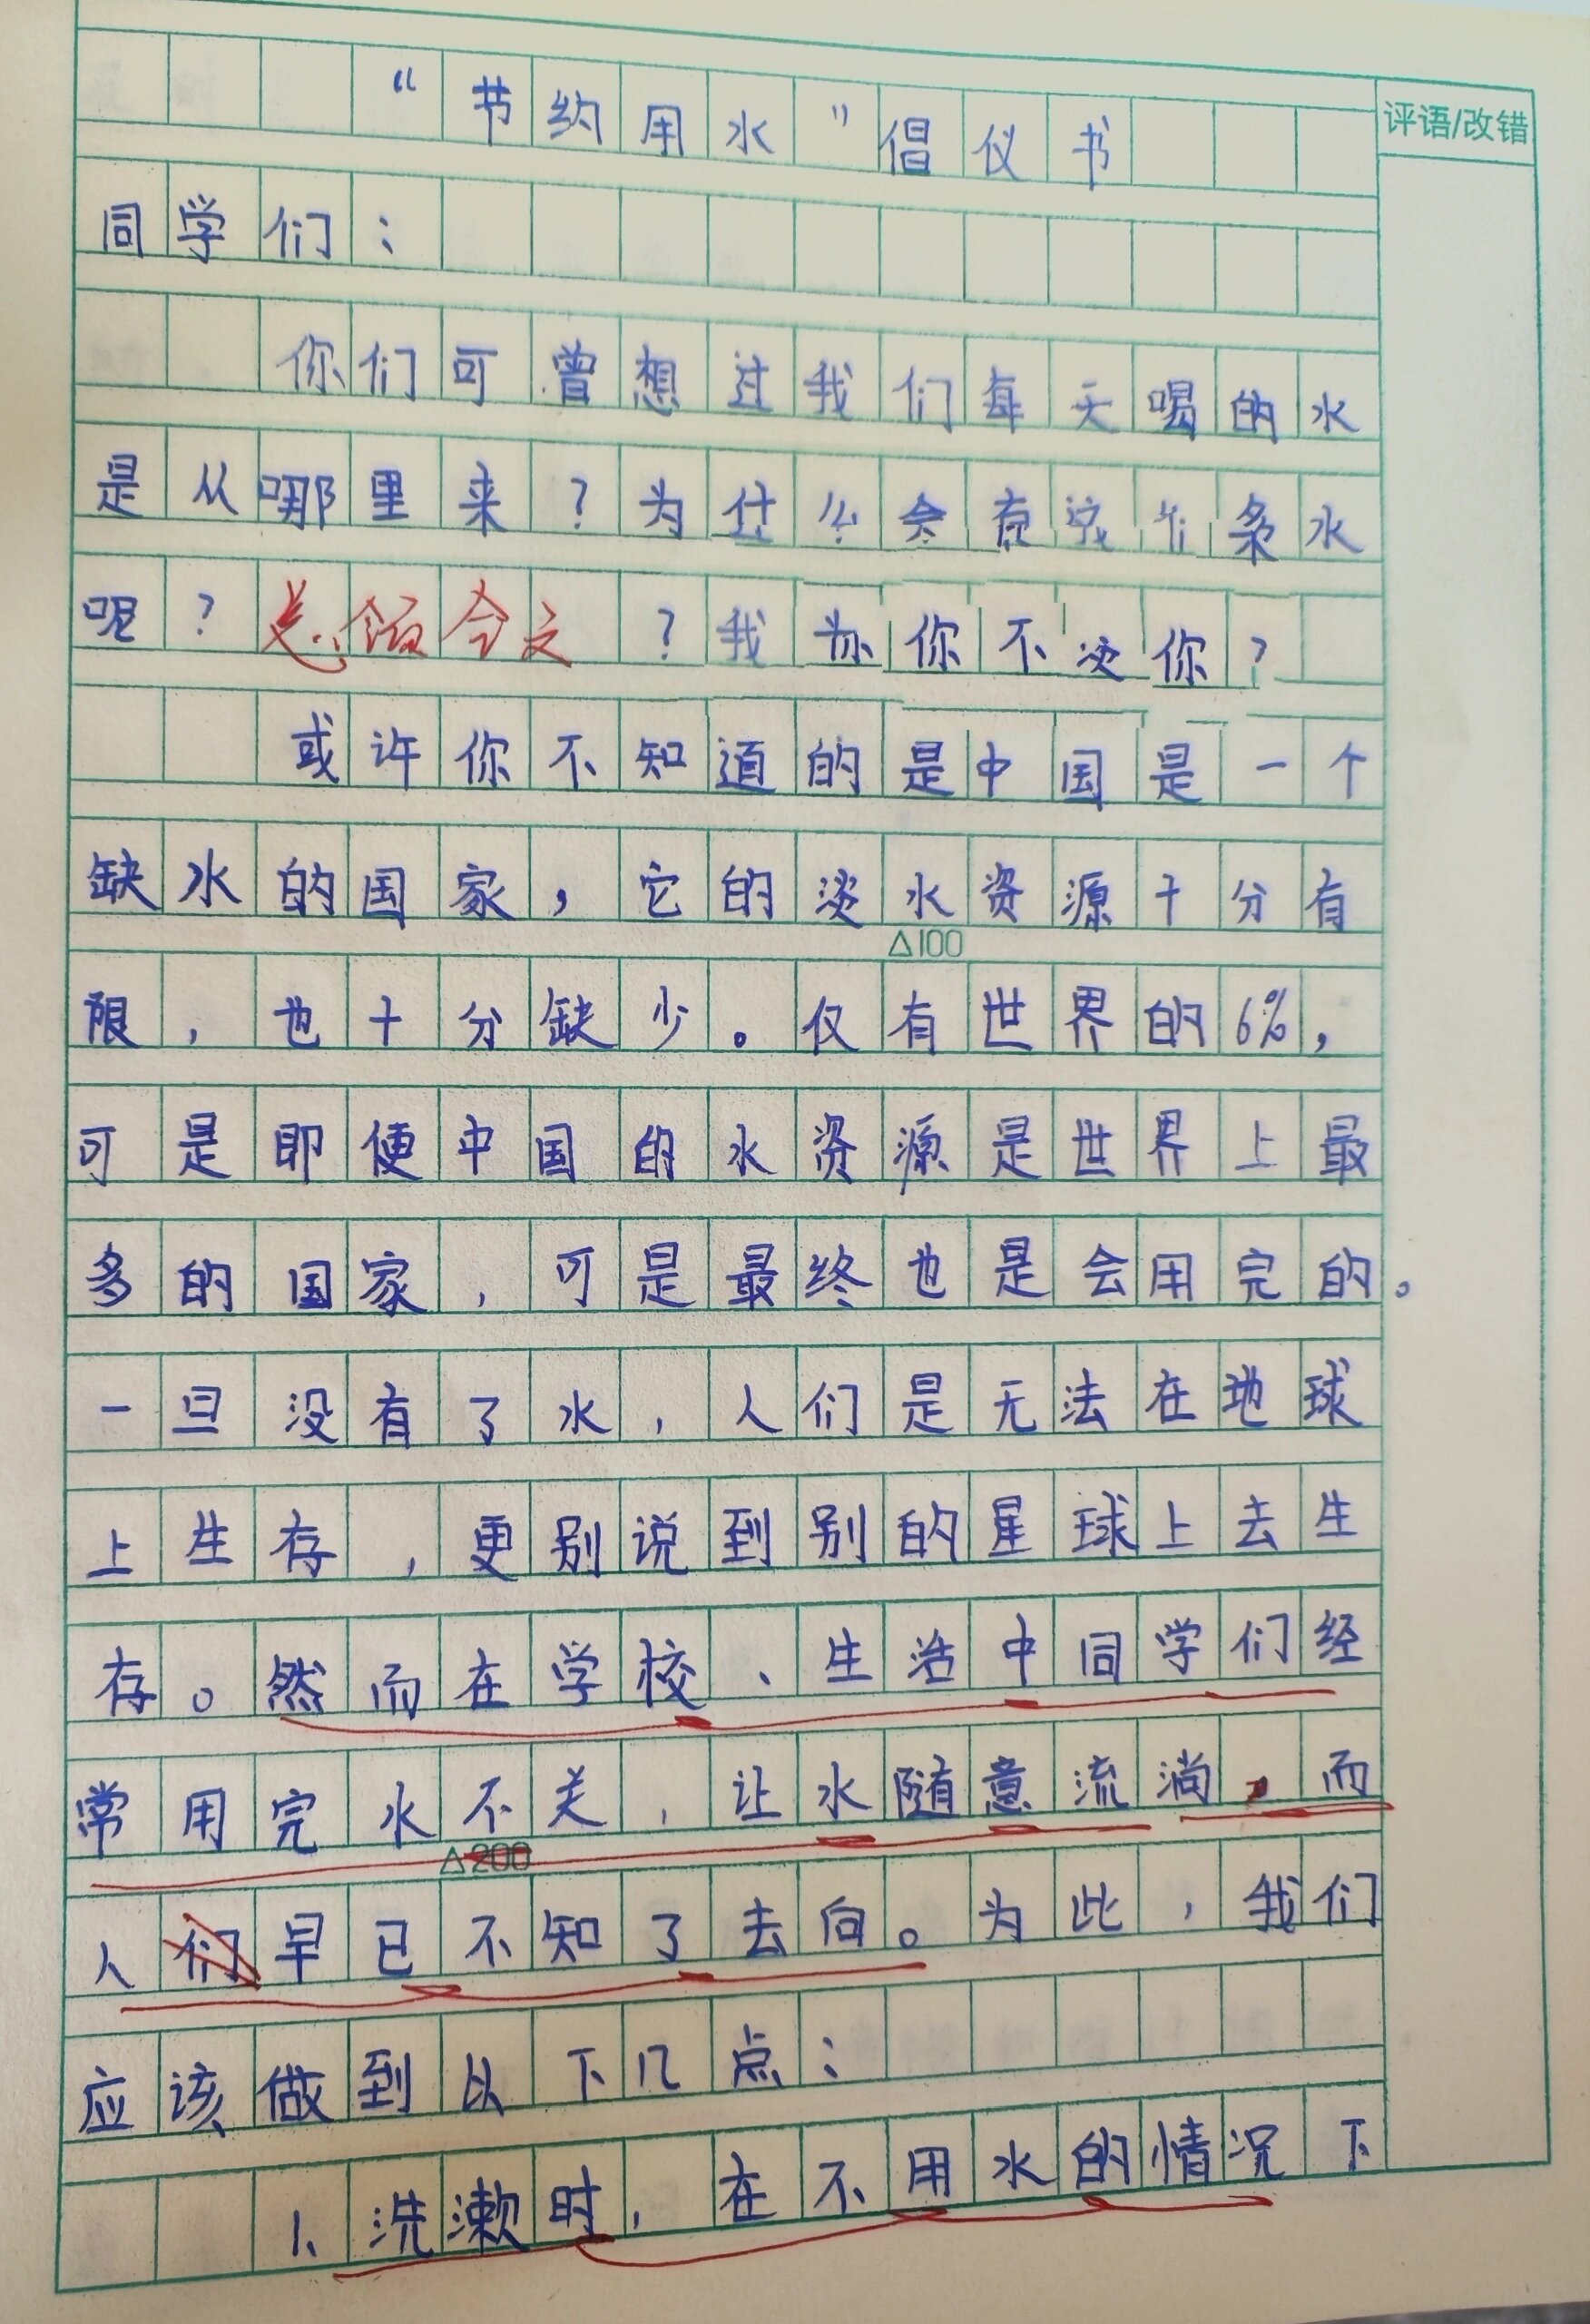 “节约用水”倡仪书
评语/改错
同学们：
你们可曾想过我们每天喝的水
是从哪里来？为什么会有这条水
呢？？我你不你？
或许你不知道的是中国是一个
缺水的国家，它的淡水资源十分有
△100
限，也十分缺少。仅有世界的6%，
可是即使中国的水资源是世界上最
多的国家，可是最终也是会用完的。
一旦没有了水，人们是无法在地球
上生存，更别说到别的星球上去生
存。然而在学校、生活中同学们经
常用完水不关，让水随意流淌，而
△200
人们早已不知了去向。为此，我们
应该做到以下几点：
1、洗漱时，在不用水的情况下